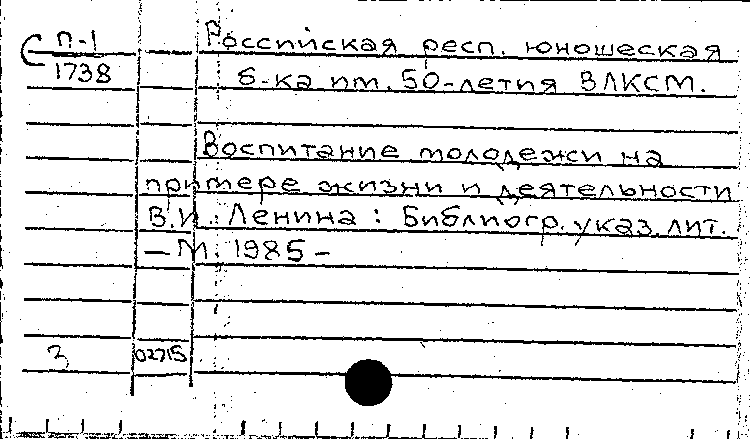 П-1 Российская респ. юношеская
1738 б-ка им. 50-летия ВЛКСМ.
Воспитание молодежи на
примере жизни и деятельности
В.И. Ленина : Библиогр. указ. лит.
— М. 1985 –
3 02715